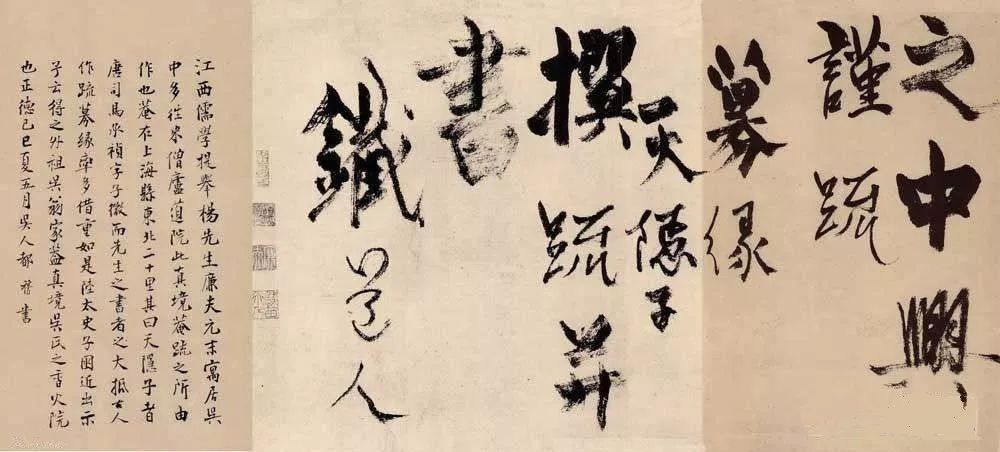 之中興
謹疏
募緣
天隱子
撰疏并
書
鐵心道人
江西儒學提舉楊先生廉夫元末寓居吳
中多往來僧廬道院此真境菴疏之所由
作也菴在上海縣東北二十里其曰天隱子者
唐司馬承禎字子微而先生之書者之大抵古人
作疏募緣率多借重如是陸太史子淵近出示
予云得之外祖吳翁家葢真境吳氏之香火院
也正德己巳夏五月吳人都穆書